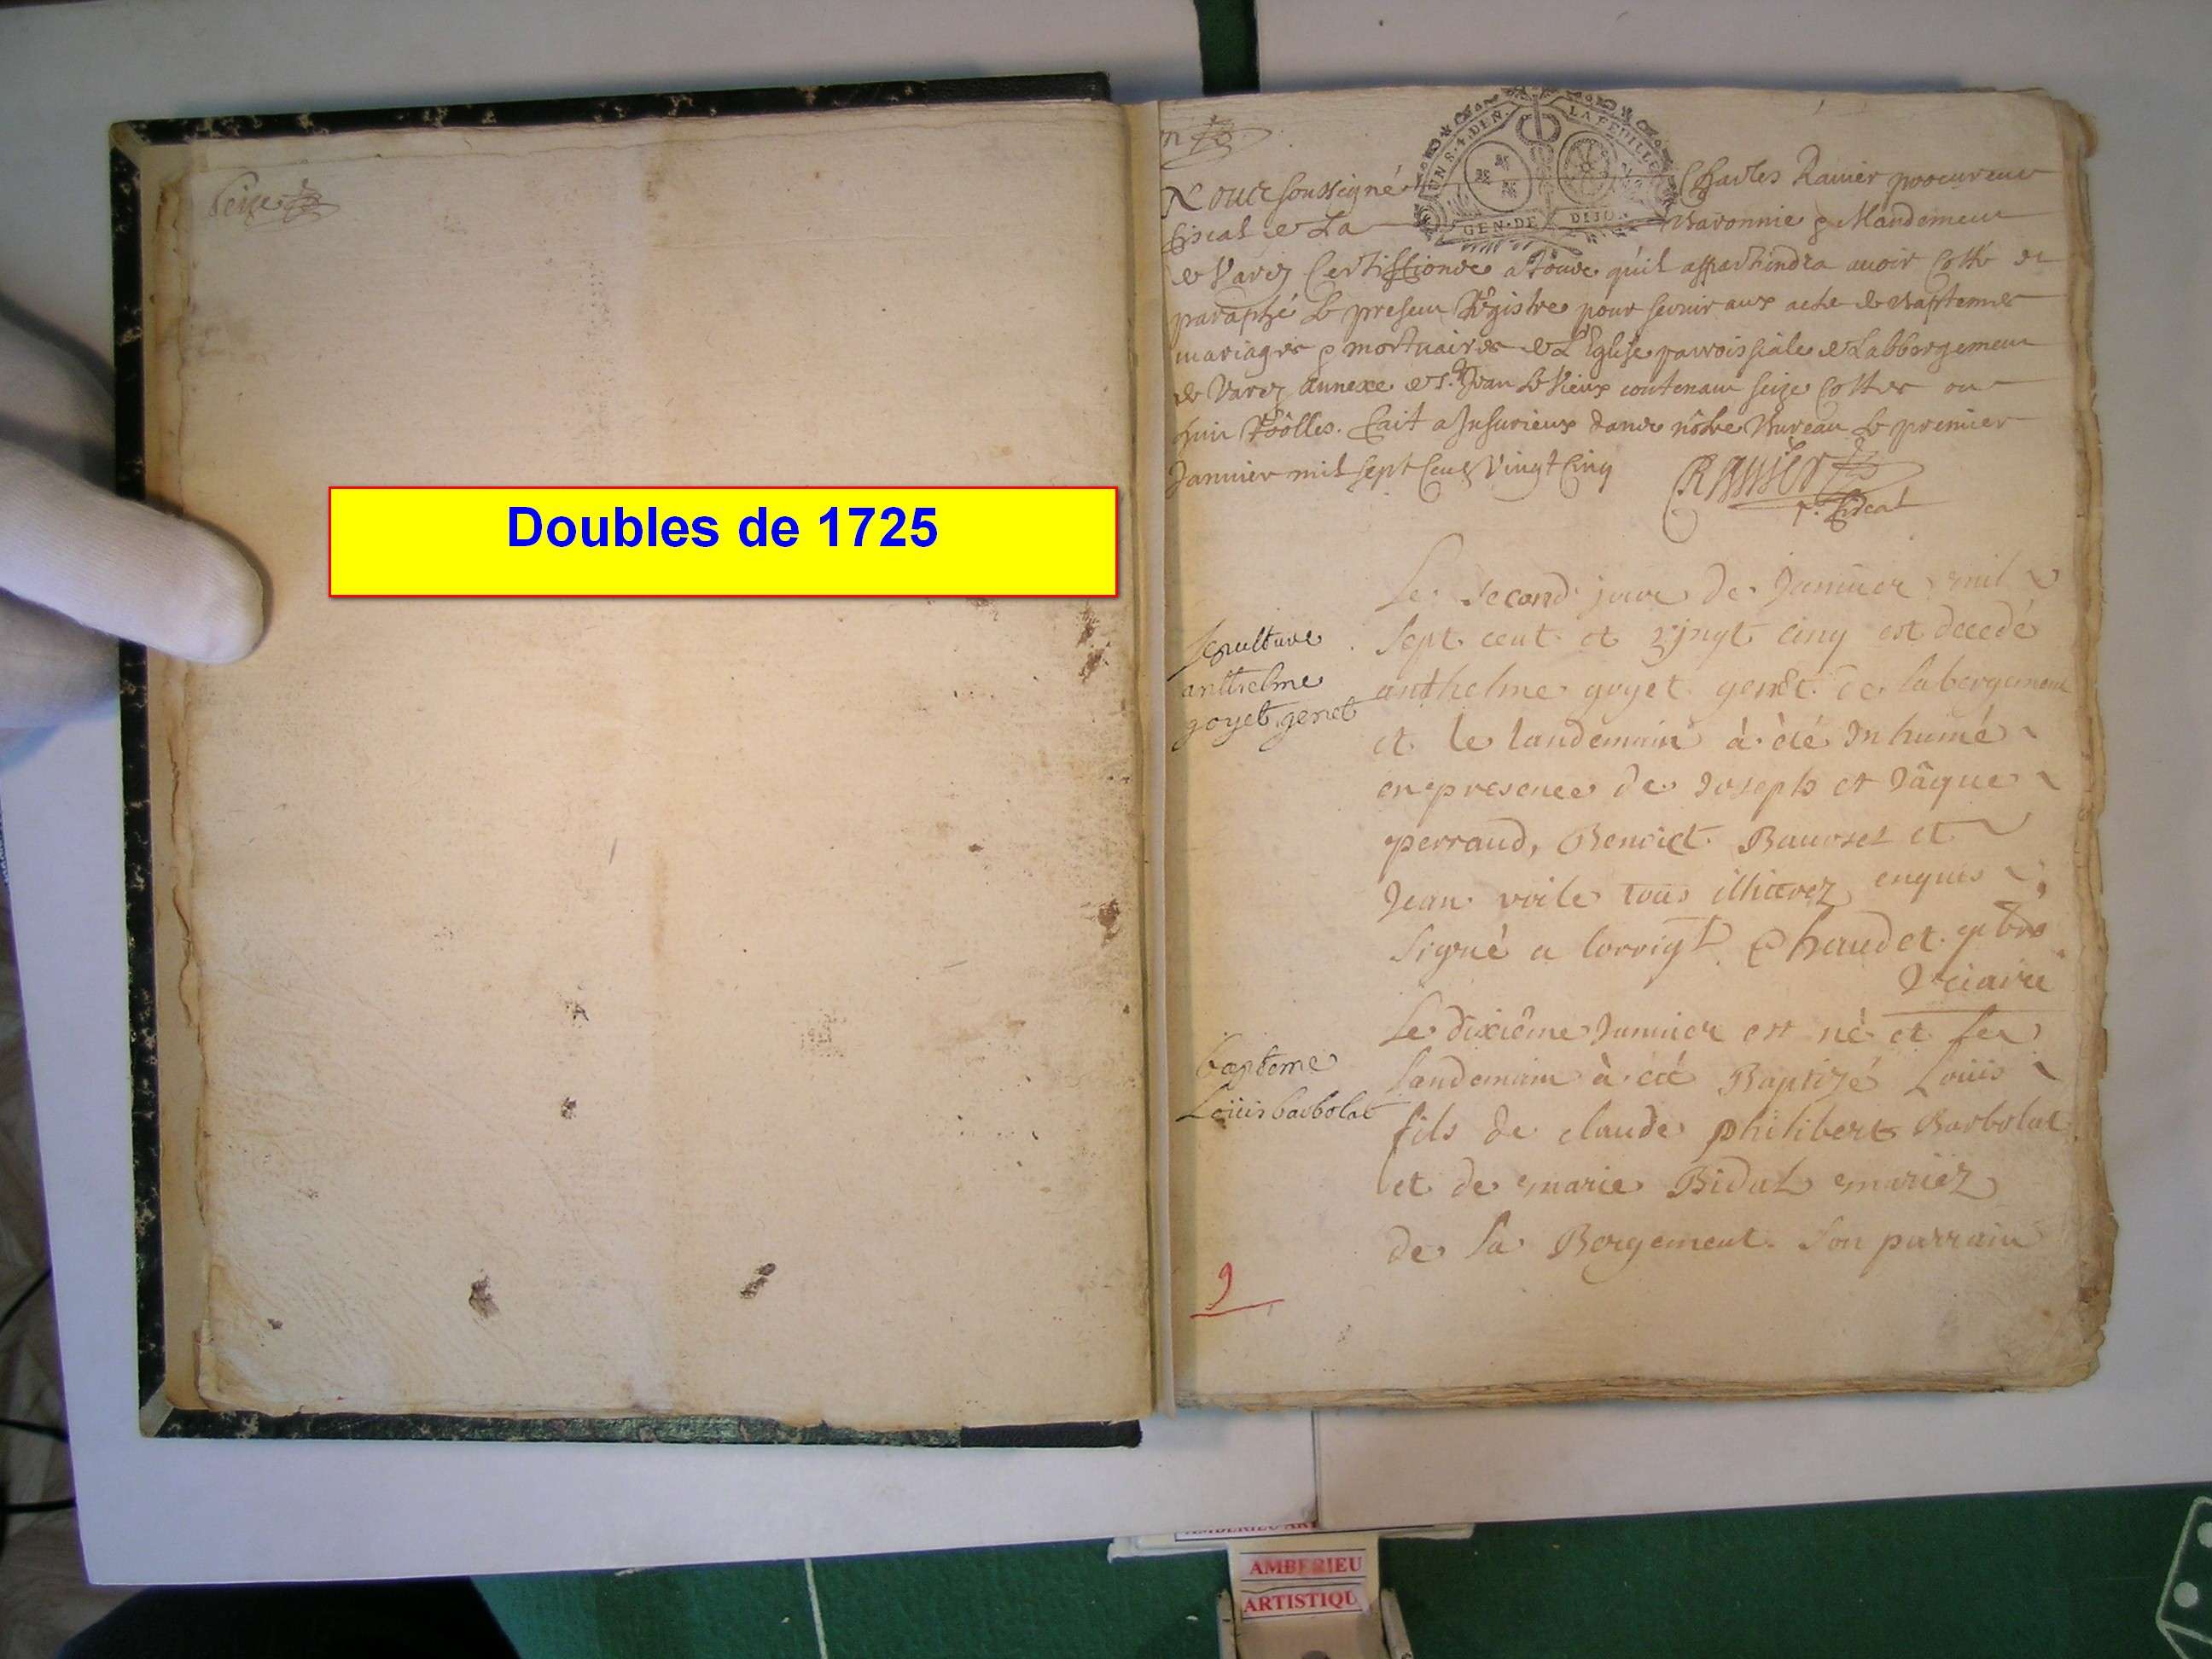 Seize
Doubles de 1725
UN S. 4. DEN. LA FEUILLE
GEN. DE DIJON
Nous soussigné Charles Ranier procureur
fiscal de La Baronnie & Mandement
de Varey Certiffions a tous quil appartiendra avoir Cotté et
paraphé Le present Registre pour servir aux acte de Baptemes
mariages & mortuaires de L'Eglise parroissiale de Labbergement
de Varey annexe de St. Jean Le Vieux contenant seize Cottes ou
huit Rôlles. fait a Jnsurieux dans nôtre Bureau Le premier
Janvier mil sept Cent Vingt Cinq
Ranier
p. fiscal
sepulture
anthelme
goyet genet
Le second jour de Janvier mil
sept cent et vjngt cinq est decedé
anthelme goyet genet de labergement
et le landemain à èté Jnhumé
en presence de Joseph et Jâque
perraud, Benoict Bourset et
Jean voile tous illiterez enquis
signé a lorrigl Chaudet ptre
Viciaire
bapteme
Loüis barbolat
Le dixiême Janvier est nè et le
landemain à èté Baptizé Loüis
fils de claude philibert Barbolat
et de marie Bidal mariéz
de la Bergement. Son parrain
9
AMBERIEU
ARTISTIQU